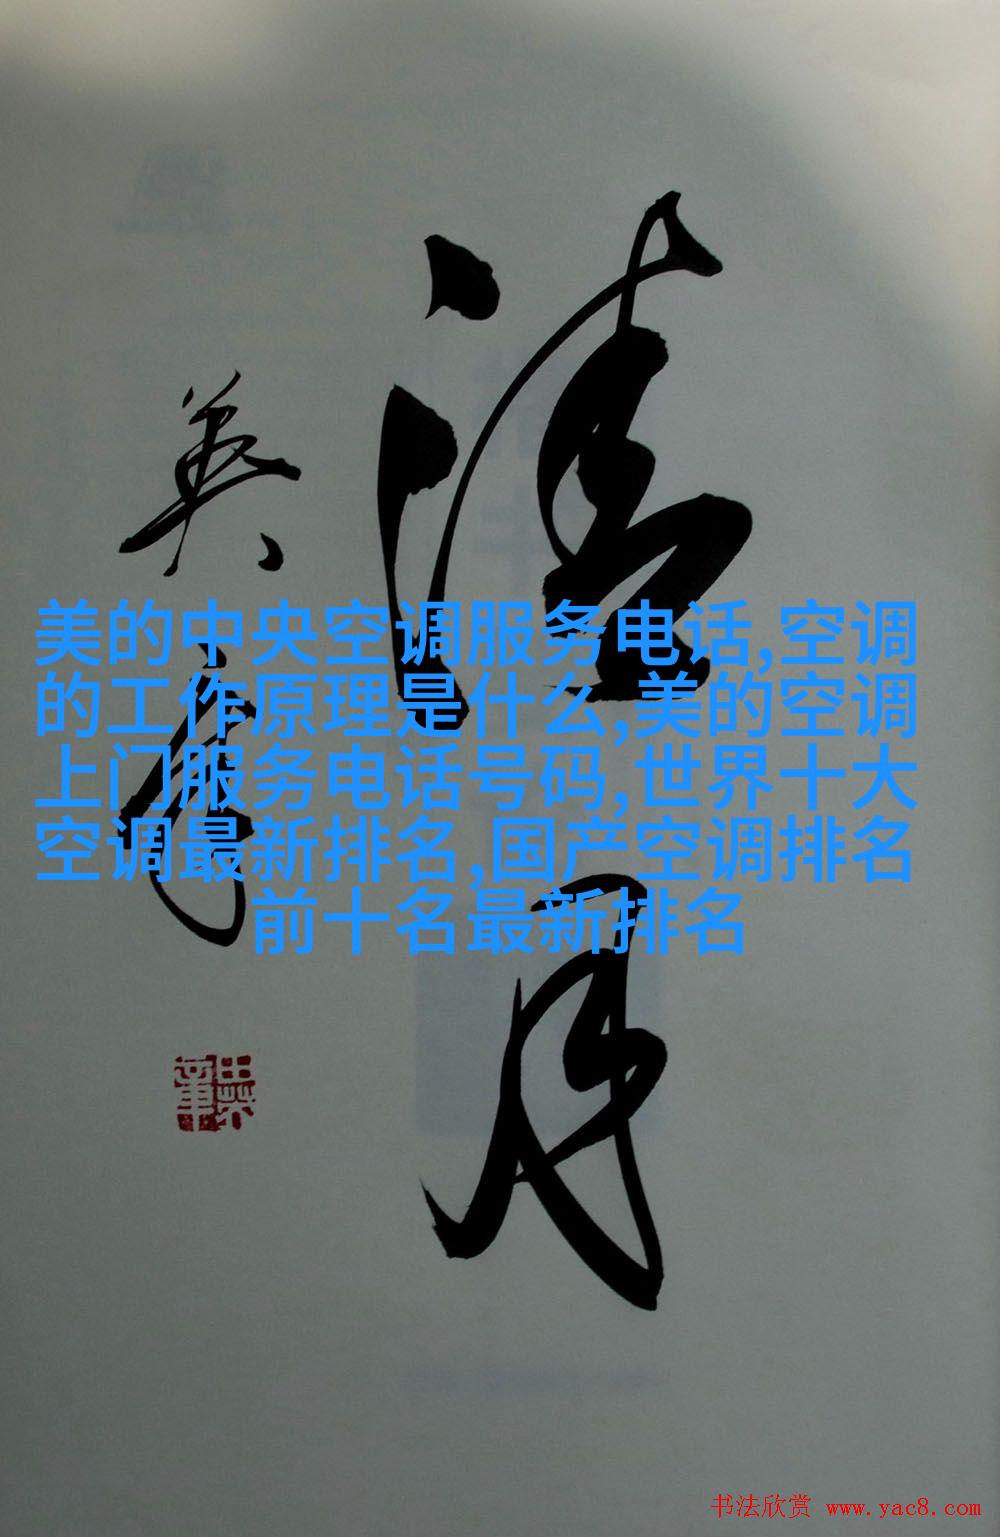 清
月
英章
美的中央空调服务电话,空调
的工作原理是什么,美的空调
上门服务电话号码,世界十大
空调最新排名,国产空调排名
前十名最新排名
书法欣赏 www.yac8.com